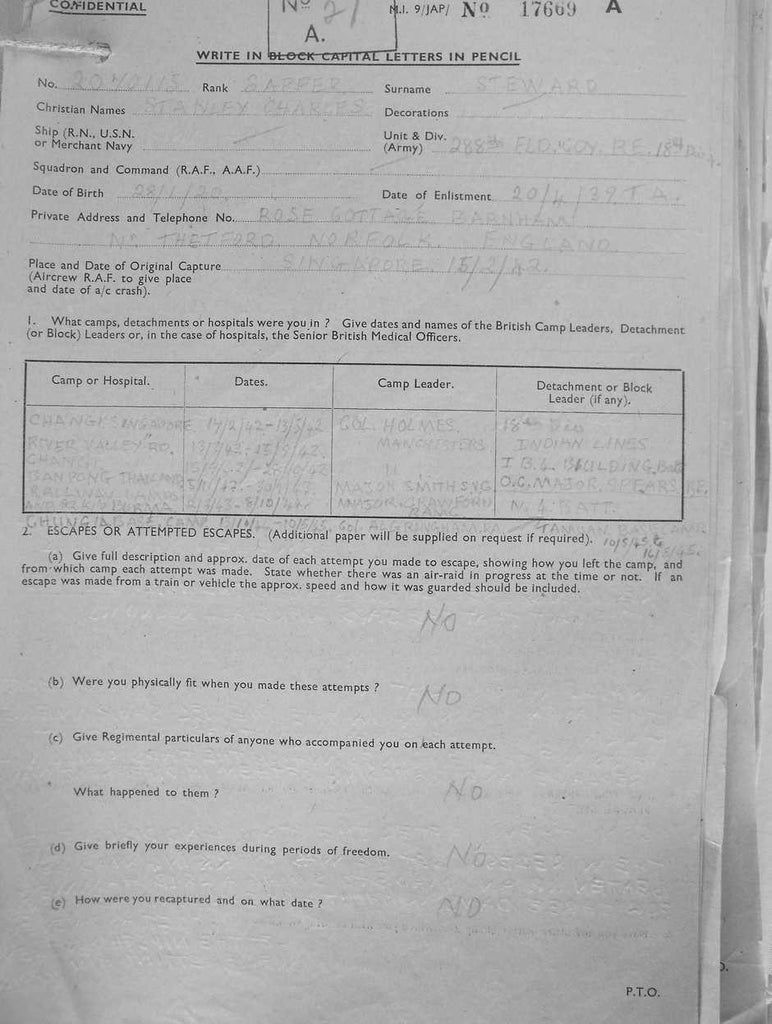 CONFIDENTIAL
No 21
M.I. 9/JAP/ No 17669 A
A.
WRITE IN BLOCK CAPITAL LETTERS IN PENCIL
No. Rank SAPPER Surname STEWARD
Christian Names STANLEY CHARLES Decorations
Ship (R.N., U.S.N. Unit & Div.
or Merchant Navy (Army) 288th FLD. COY. R.E. 18th Div.
Squadron and Command (R.A.F., A.A.F.)
Date of Birth 28/1/20 Date of Enlistment 20/4/39 T.A.
Private Address and Telephone No. ROSE COTTAGE BARNHAM
Nr THETFORD NORFOLK ENGLAND
Place and Date of Original Capture SINGAPORE 15/2/42.
(Aircrew R.A.F. to give place
and date of a/c crash).
1. What camps, detachments or hospitals were you in ? Give dates and names of the British Camp Leaders, Detachment
(or Block) Leaders or, in the case of hospitals, the Senior British Medical Officers.
Camp or Hospital. Dates. Camp Leader. Detachment or Block
Leader (if any).
CHANGI SINGAPORE 17/2/42 COL. HOLMES. 18th Div
RIVER VALLEY RD. MANCHESTERS INDIAN LINES
CHANGI " BUILDING
BAN PONG THAILAND MAJOR SMITH O.C. MAJOR SPEARS R.E.
RAILWAY CAMPS MAJOR CRAWFORD BATT.
10/5/45 to
2. ESCAPES OR ATTEMPTED ESCAPES. (Additional paper will be supplied on request if required).
(a) Give full description and approx. date of each attempt you made to escape, showing how you left the camp, and
from which camp each attempt was made. State whether there was an air-raid in progress at the time or not. If an
escape was made from a train or vehicle the approx. speed and how it was guarded should be included.
NO
(b) Were you physically fit when you made these attempts ? NO
(c) Give Regimental particulars of anyone who accompanied you on each attempt.
What happened to them ? NO
(d) Give briefly your experiences during periods of freedom. NO
(e) How were you recaptured and on what date ? NO
P.T.O.